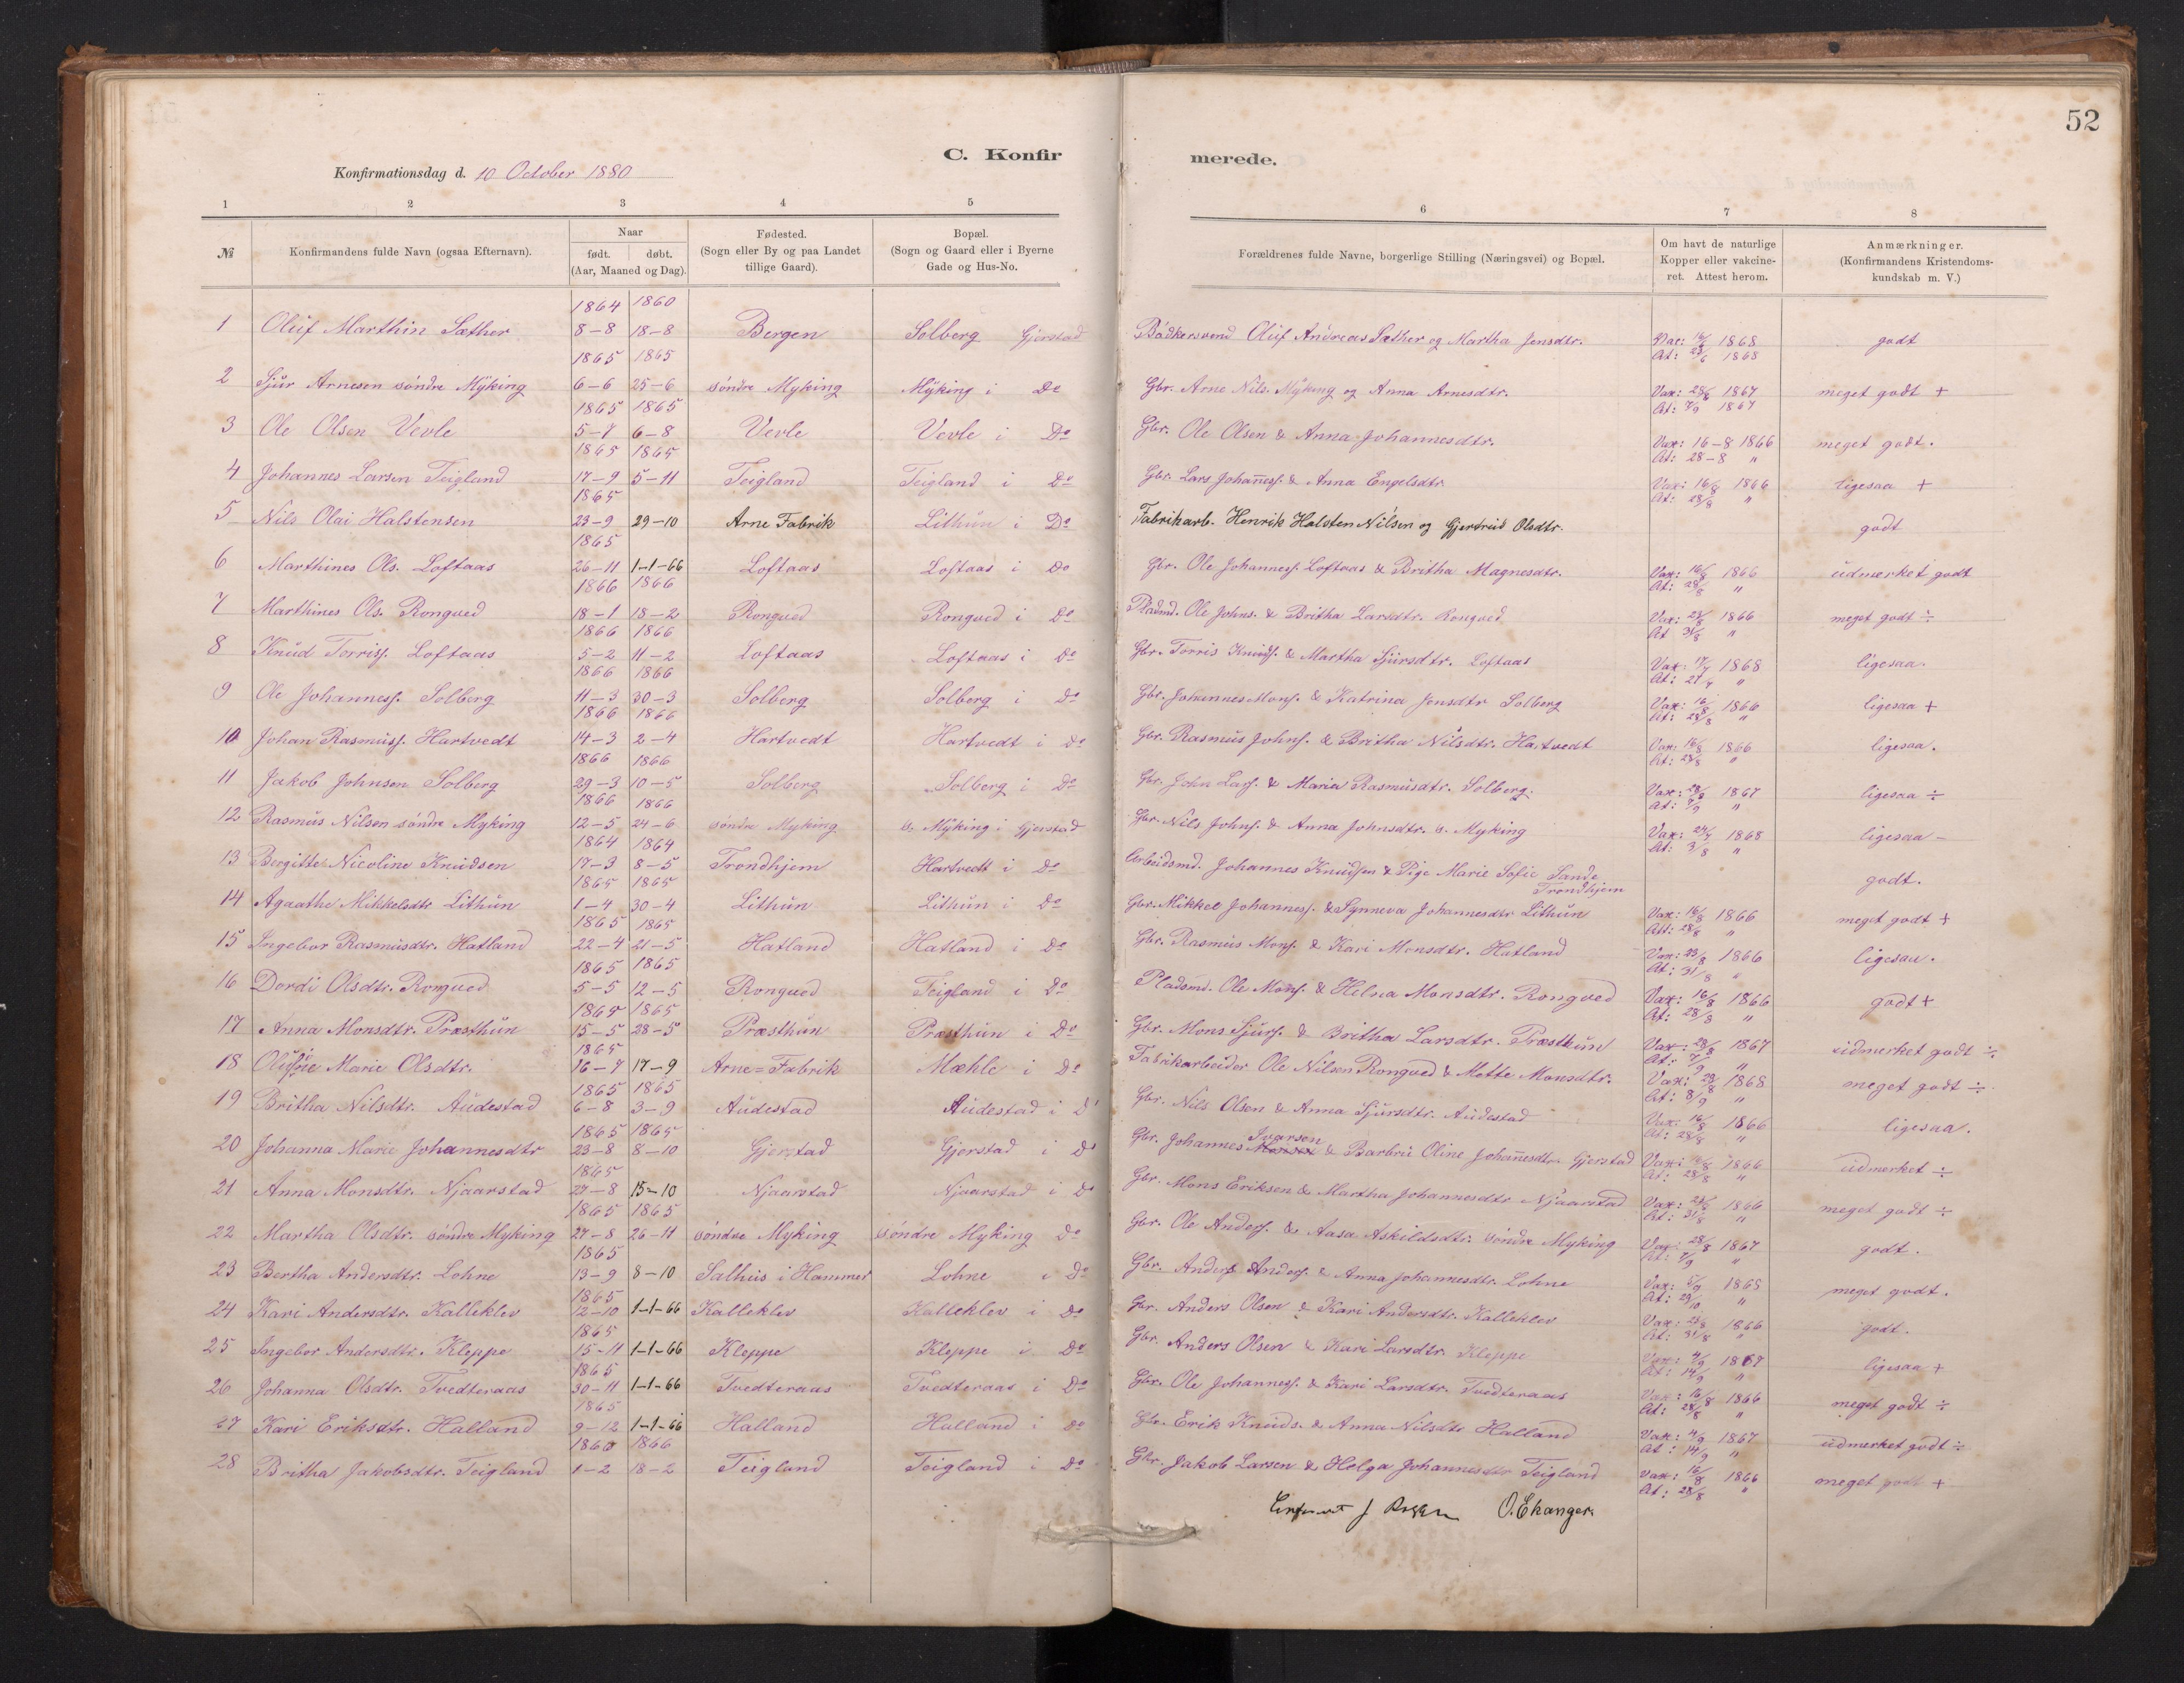 52
C. Konfirmerede.
Konfirmationsdag d. 10 October 1880
1 2 3 4 5 6 7 8
№ Konfirmandens fulde Navn (ogsaa Efternavn). Naar født. døbt. (Aar, Maaned og Dag). Fødested. (Sogn eller By og paa Landet tillige Gaard). Bopæl. (Sogn og Gaard eller i Byerne Gade og Hus-No. Forældrenes fulde Navne, borgerlige Stilling (Næringsvei) og Bopæl. Om havt de naturlige Kopper eller vakcineret. Attest herom. Anmærkninger. (Konfirmandens Kristendomskundskab m. V.)
1 Oluf Marthin Sæther 1864 8-8 1860 18-8 Bergen Solberg Gjerstad Bødkersvend Oluf Andreas Sæther og Martha Jensdtr. 1868 1868 godt
2 Sjur Arnesen søndre Myking 1865 6-6 1865 25-6 søndre Myking Myking i Do Gbr. Arne Nils. Myking og Anna Arnesdtr. Vax: 28/8 1867 At: 7/9 1867 meget godt +
3 Ole Olsen Vevle 1865 5-7 1865 6-8 Vevle Vevle i Do Gbr. Ole Olsen & Anna Johannesdtr. Vax: 16-8 1866 At: 28-8 " meget godt.
4 Johannes Larsen Teigland 1865 17-9 1865 5-11 Teigland Teigland i Do Gbr. Lars Johaness. & Anna Engelsdtr Vax: 16/8 1866 At: 28/8 " ligesaa +
5 Nils Olai Halstensen 1865 23-9 29-10 Arne Fabrik Lithun i Do Fabrikarb. Henrik Halsten Nilsen og Gjertrud Olsdtr. godt
6 Marthines Ols. Loftaas 1865 26-11 1-1-66 Loftaas Loftaas i Do Gbr. Ole Johanness. Loftaas & Britha Magnesdtr. Vax: 16/8 1866 At: 28/8 " udmerket godt
7 Marthines Ols. Rongved 1866 18-1 1866 18-2 Rongved Rongved i Do Pladsmd. Ole Johns. & Britha Larsdtr. Rongved Vax: 23/8 1866 At 31/8 " meget godt ÷
8 Knud Torriss. Loftaas 1866 5-2 1866 11-2 Loftaas Loftaas i Do Gbr. Torris Knuds. & Martha Sjursdtr. Loftaas Vax: 1868 At: " ligesaa.
9 Ole Johanness. Solberg 1866 11-3 1866 30-3 Solberg Solberg i Do Gbr. Johannes Mons. & Katrina Jensdtr Solberg Vax: 16/8 1866 At: 28/8 " ligesaa +
10 Johan Rasmuss. Hartvedt 1866 14-3 1866 2-4 Hartvedt Hartvedt i Do Gbr. Rasmus Johns. & Britha Nilsdtr. Hartvedt Vax: 16/8 1866 At: 28/8 " ligesaa.
11 Jakob Johnsen Solberg 1866 29-3 1866 10-5 Solberg Solberg i Do Gbr. John Lars. & Maria Rasmusdtr. Solberg. Vax: 28/8 1867 At: 7/9 " ligesaa ÷
12 Rasmus Nilsen søndre Myking 1866 12-5 1866 24-6 søndre Myking s. Myking i Gjerstad Gbr. Nils Johns. & Anna Johnsdtr. s. Myking Vax: 1868 At: 3/8 " ligesaa -
13 Bergitte Nicoline Knudsen 1864 17-3 1864 8-5 Trondhjem Hartvedt i Do Arbeidsmd. Johannes Knudsen & Pige Marie Sofie Sande Trondhjem godt.
14 Agaathe Mikkelsdtr Lithun 1865 1-4 1865 30-4 Lithun Lithun i Do Gbr. Mikkel Johanness. & Synneva Johannesdtr Lithun Vax: 16/8 1866 Att: 28/8 " meget godt +
15 Ingebor Rasmusdtr. Hatland 1865 22-4 1865 21-5 Hatland Hatland i Do Gbr. Rasmus Mons. & Kari Monsdtr. Hatland Vax: 23/8 1866 At: 31/8 " ligesaa.
16 Dordi Olsdtr. Rongved 1865 5-5 1865 12-5 Rongved Teigland i Do Pladsmd. Ole Mons. & Helna Monsdtr. Rongved Vax: 16/8 1866 At: 28/8 " godt +
17 Anna Monsdtr. Præsthun 1865 15-5 1865 28-5 Præsthun Præsthun i Do Gbr. Mons Sjurs. & Britha Larsdtr. Præsthun Vax: 28/8 1867 At: 7/9 " udmerket godt ÷
18 Marie Olsdtr. 1865 16-7 17-9 Arne=Fabrik Mæhle i Do Fabrikarbeider Ole Nilsen Rongved & Mette Monsdtr. Vax: 1868 At: 8/9 " meget godt ÷
19 Britha Nilsdtr. Audestad 1865 6-8 1865 3-9 Audestad Audestad i Do Gbr. Nils Olsen & Anna Sjursdtr. Audestad Vax: 16/8 1866 At: 28/8 " ligesaa.
20 Johanna Marie Johannesdtr 1865 23-8 1865 8-10 Gjerstad Gjerstad i Do Gbr. Johannes Ivarsen & Barbru Oline Johanesdtr. Gjerstad Vax: 16/8 1866 At: 28/8 " udmerket ÷
21 Anna Monsdtr. Njaarstad 1865 27-8 15-10 Njaarstad Njaarstad i Do Gbr. Mons Eriksen & Martha Johannesdtr Njaarstad Vax: 23/8 1866 At: 31/8 " meget godt ÷
22 Martha Olsdtr. søndre Myking 1865 27-8 1865 26-11 søndre Myking søndre Myking Do Gbr. Ole Anders. & Aasa Askildsdtr. søndre Myking Vax: 28/8 1867 At: 7/9 " godt.
23 Bertha Andersdtr. Lohne 1865 13-9 8-10 Salhus i Hammer Lohne i Do Gbr. Anders Anders. & Anna Johannesdtr. Lohne Vax: 1868 At: 29/10 " meget godt.
24 Kari Andersdtr. Kalleklev 1865 12-10 1-1-66 Kalleklev Kalleklev i Do Gbr. Anders Olsen & Kari Andersdtr. Kalleklev Vax: 23/8 1866 At: 31/8 " godt.
25 Ingebor Andersdtr. Kleppe 1865 15-11 1-1-66 Kleppe Kleppe i Do Gbr. Anders Olsen & Kari Larsdtr. Kleppe Vax: 4/9 1867 At: 14/9 " ligesaa +
26 Johanna Olsdtr. Tvedteraas 1865 30-11 1-1-66 Tvedteraas Tvedteraas i Do Gbr. Ole Johanness. & Kari Larsdtr. Tvedteraas Vax: 16/8 1866 At: 28/8 " meget godt ÷
27 Kari Eriksdtr. Halland 1865 9-12 1-1-66 Halland Halland i Do Gbr. Erik Knuds. & Anna Nilsdtr Halland Vax: 4/9 1867 At: 14/9 " udmerket godt ÷
28 Britha Jakobsdtr. Teigland 1866 1-2 1866 18-2 Teigland Teigland i Do Gbr. Jakob Larsen & Helga Johannesdtr Teigland Vax: 16/8 1866 At: 28/8 " meget godt +
O. Ekanger.